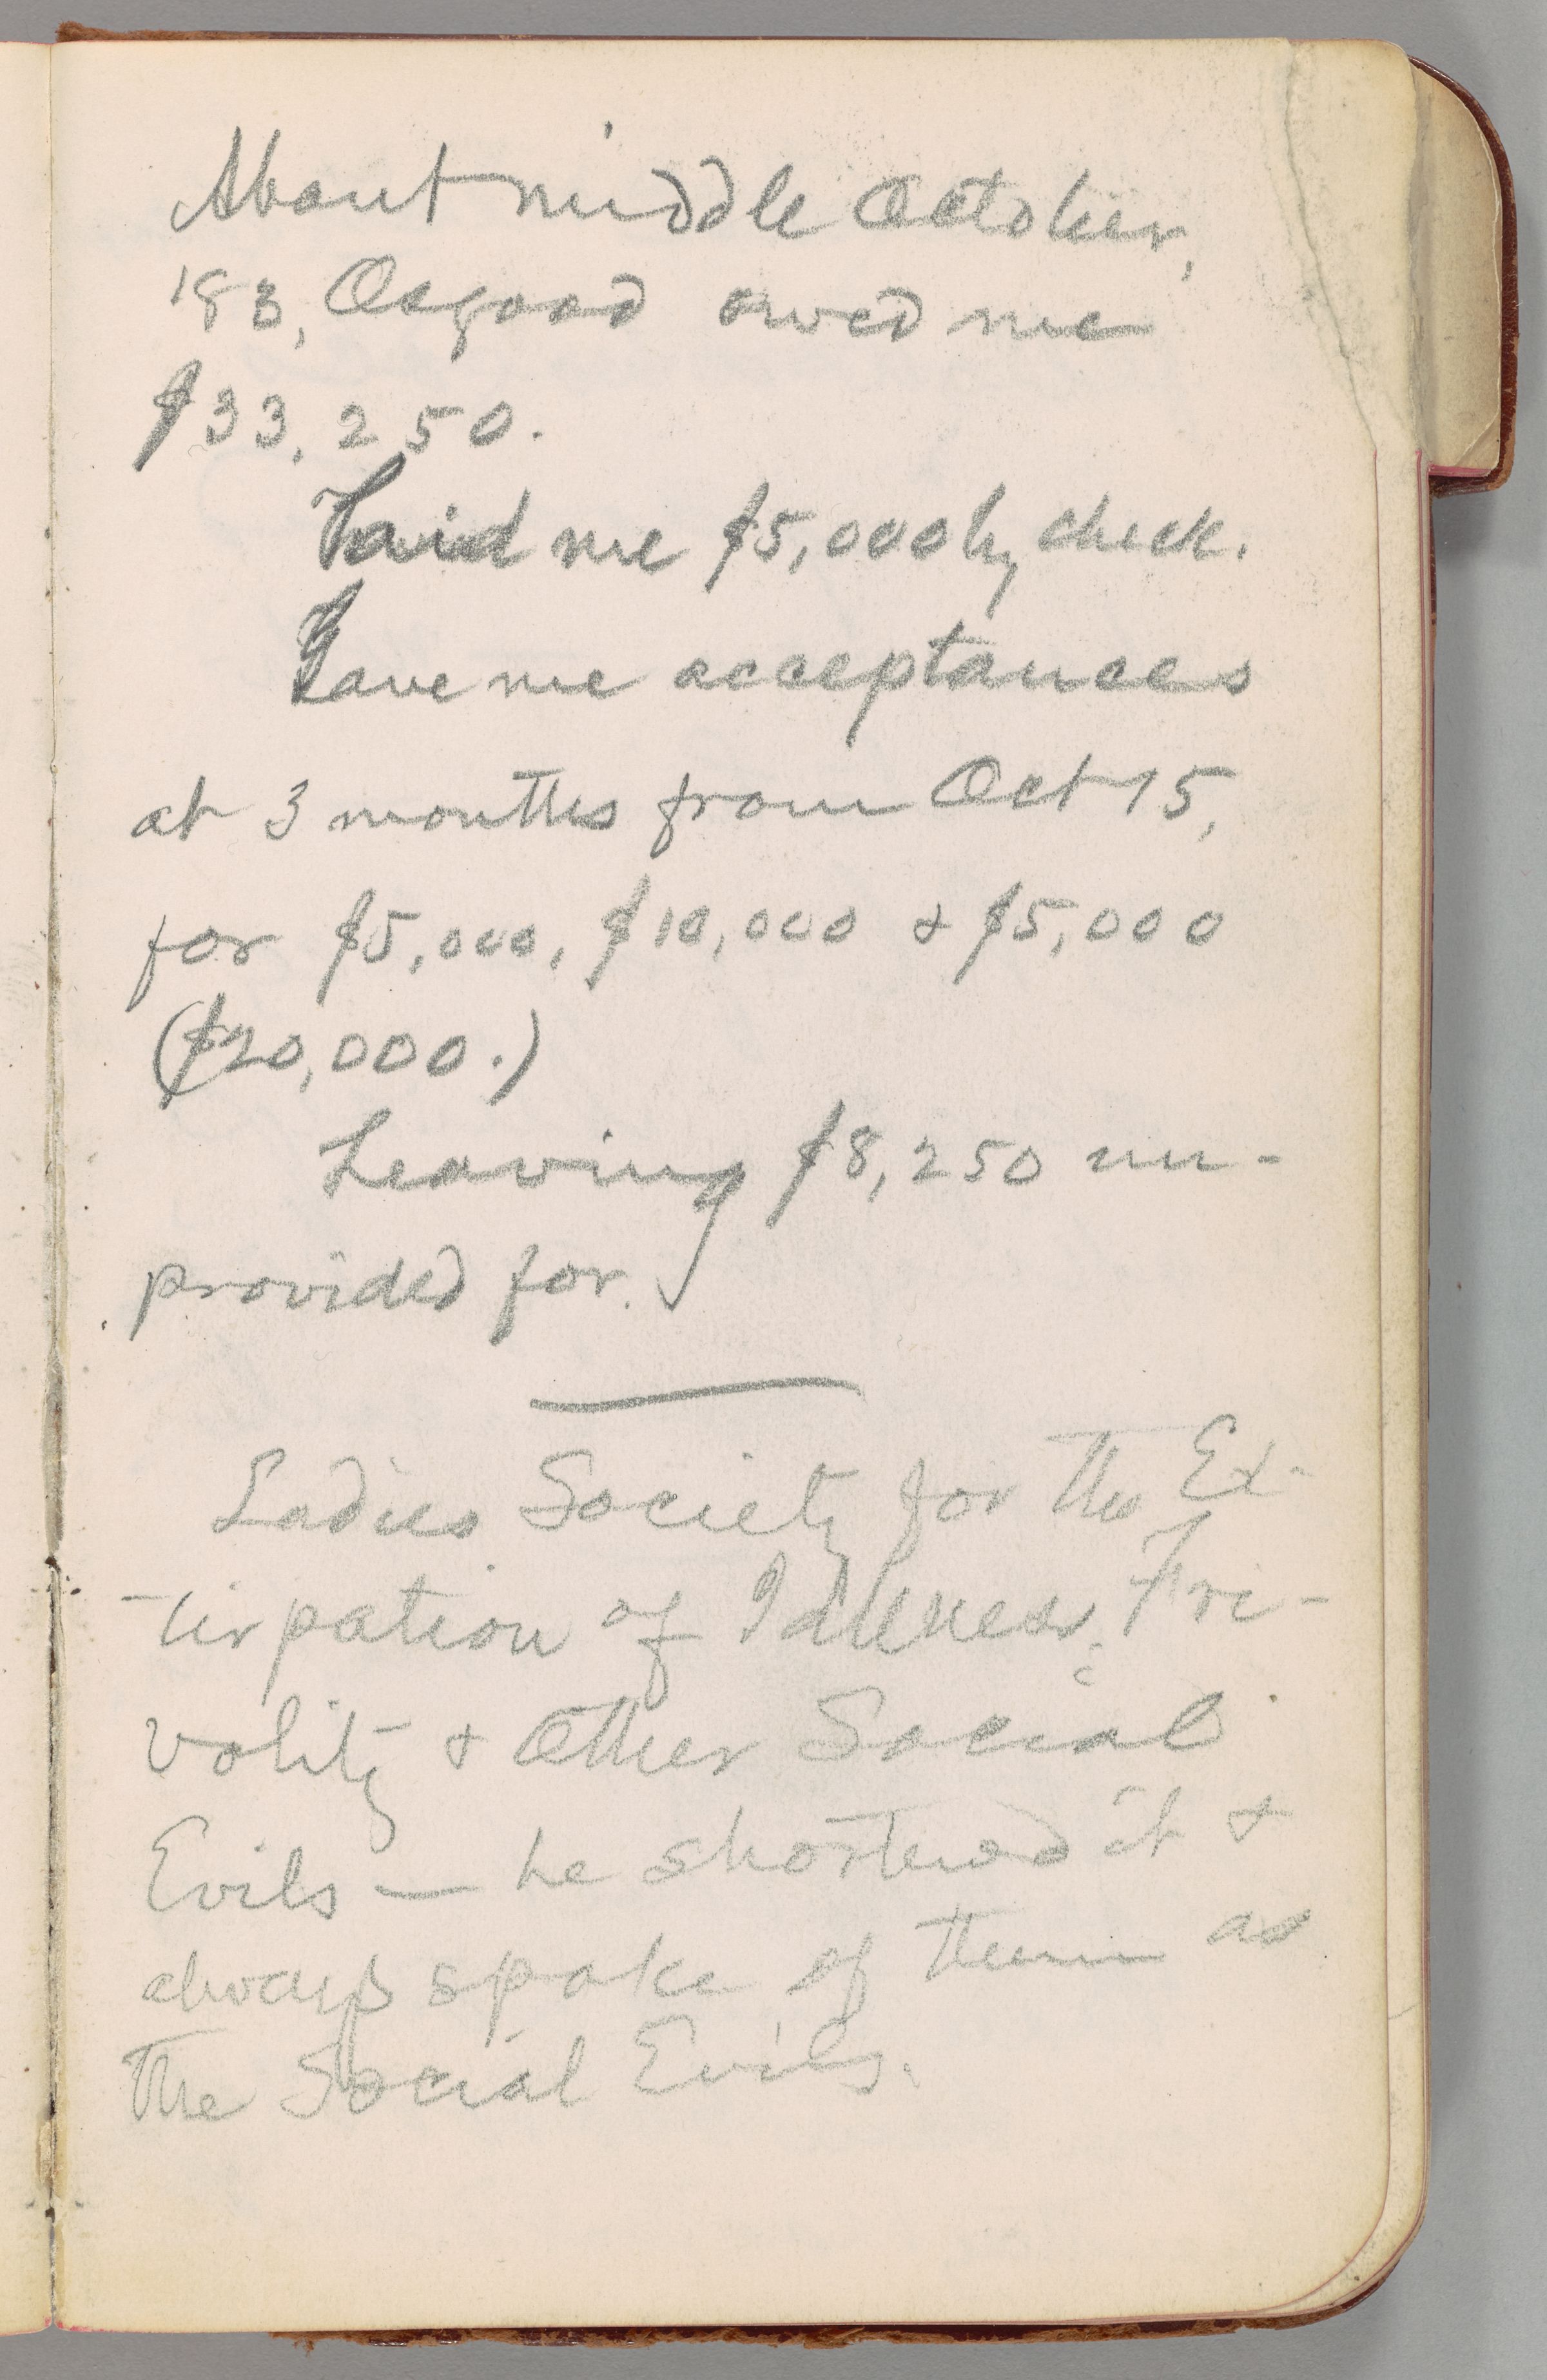 About middle October,
'83, Osgood owed me
$33,250.
Paid me $5,000 by check.
Gave me acceptances
at 3 months from Oct 15,
for $5,000, $10,000 & $5,000
($20,000.)
Leaving $8,250 un-
provided for.
Ladies Society for the Ex-
-tirpation of Idleness, Fri-
volity & Other Social
Evils — he shortened it &
always spoke of them as
the Social Evils.